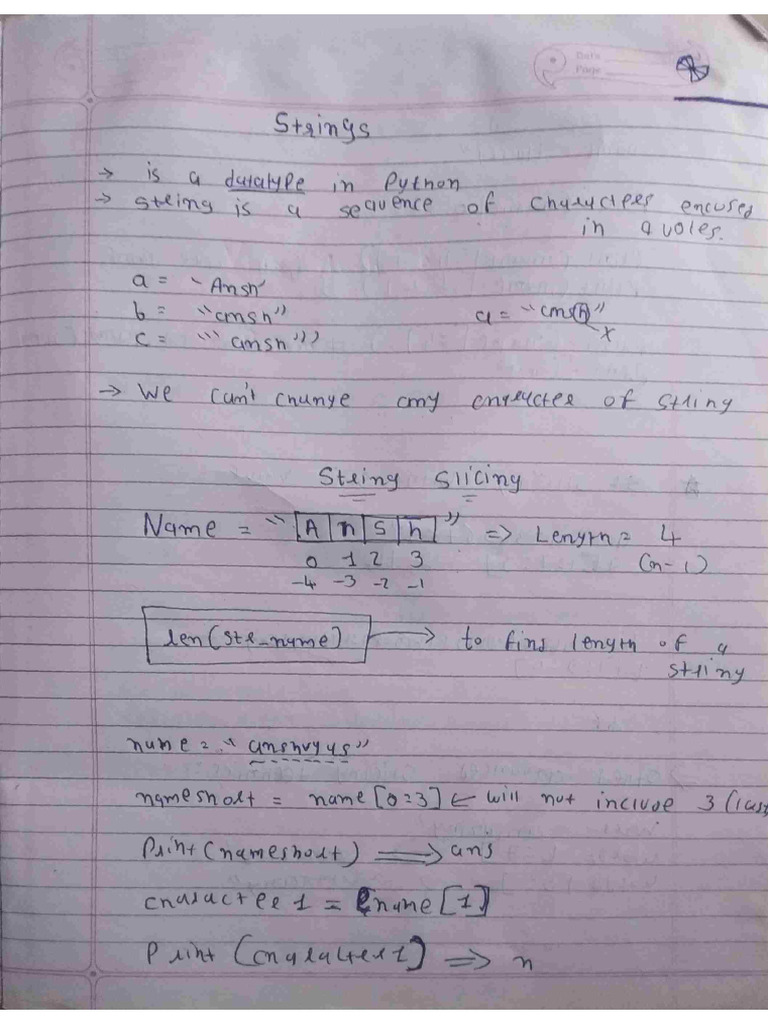 Date
Page
Strings
→ is a datatype in Python
→ string is a sequence of characters encused
in quotes.
a = 'Ansh'
b = "ansh" a = "ansh"
x
c = '''ansh'''
→ We can't change any character of string
String Slicing
Name = "Ansh" => Length = 4
0 1 2 3 (n-1)
-4 -3 -2 -1
len(str_name) → to find length of a
string
name = "anshvyas"
nameshort = name[0:3] ← will not include 3 (last
Print(nameshort) => ans
character1 = name[1]
Print(character1) => n